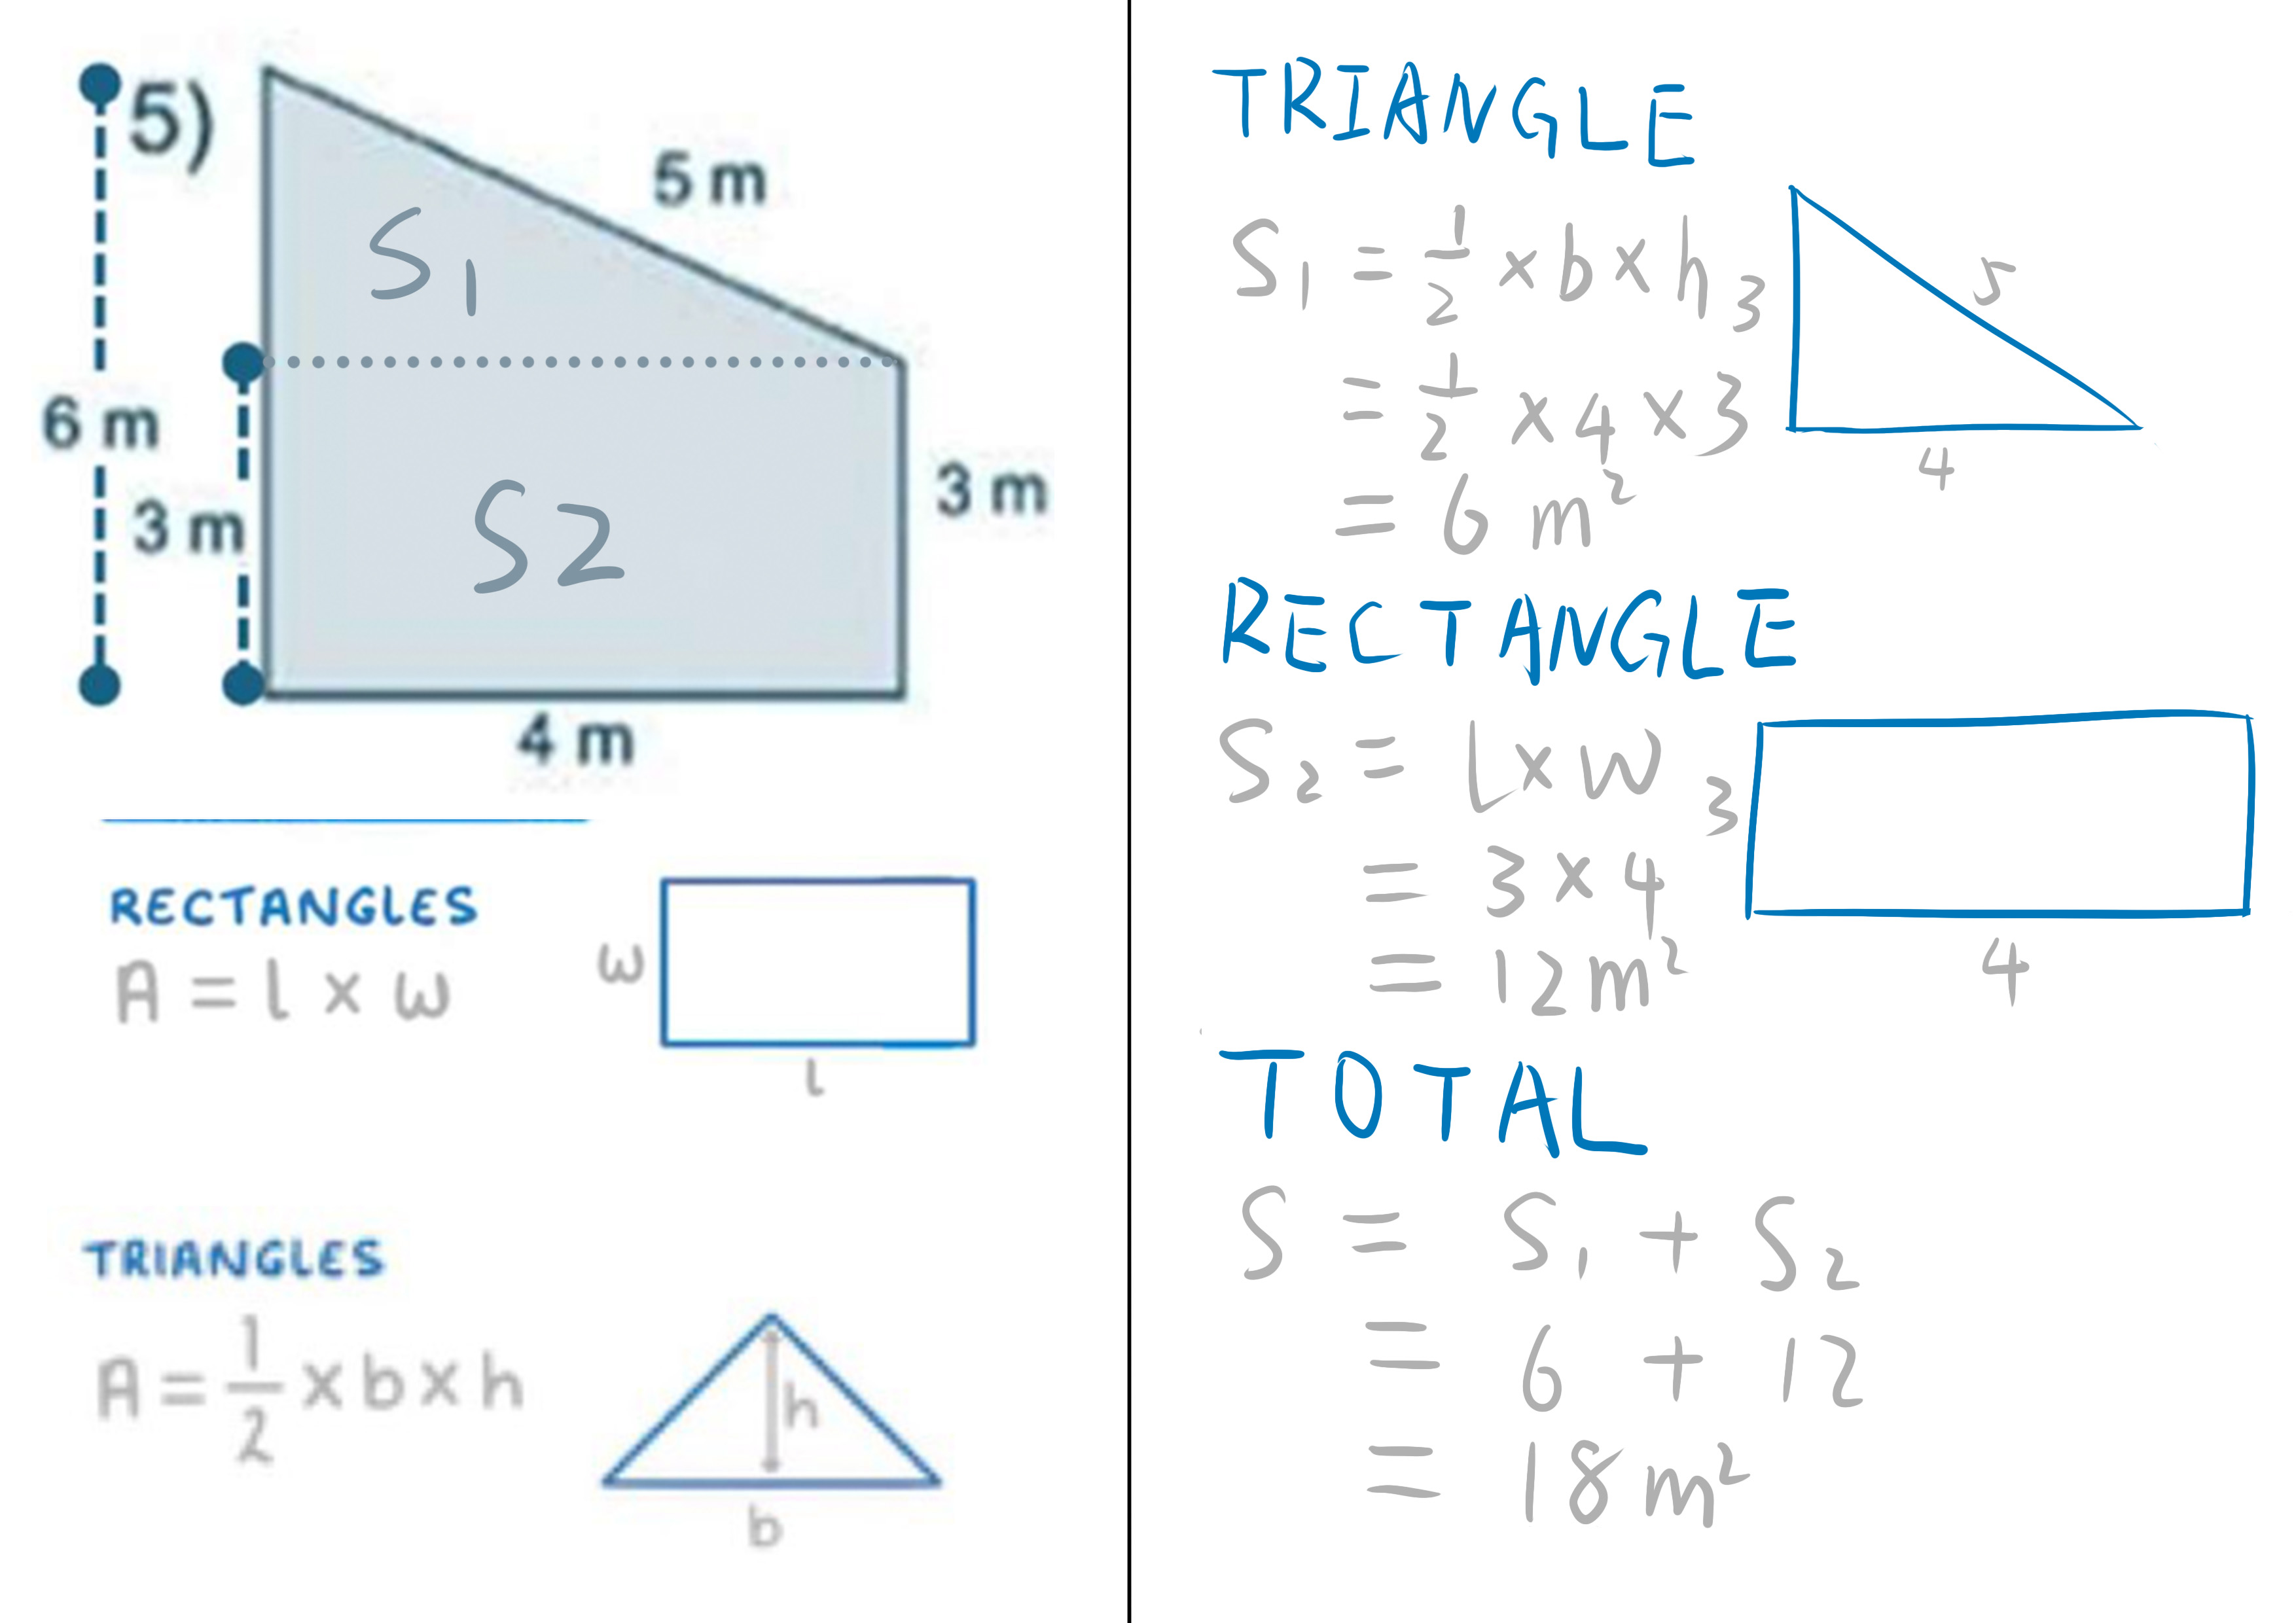 5)
5 m
S1
6 m
3 m
S2
3 m
4 m
RECTANGLES
A = l x w
w
l
TRIANGLES
A = 1/2 x b x h
h
b
TRIANGLE
S1 = 1/2 x b x h
3
5
= 1/2 x 4 x 3
4
= 6 m²
RECTANGLE
S2 = l x w
3
= 3 x 4
4
= 12 m²
TOTAL
S = S1 + S2
= 6 + 12
= 18 m²